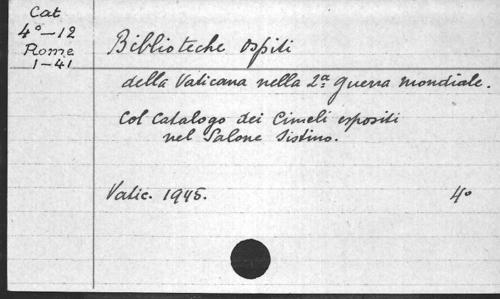 Cat
4°-12
Rome
1-41
Biblioteche ospiti
della Vaticana nella 2ª guerra mondiale.
Col Catalogo dei Cimeli esposti
nel Salone Sistino.
Vatic. 1945. 4°